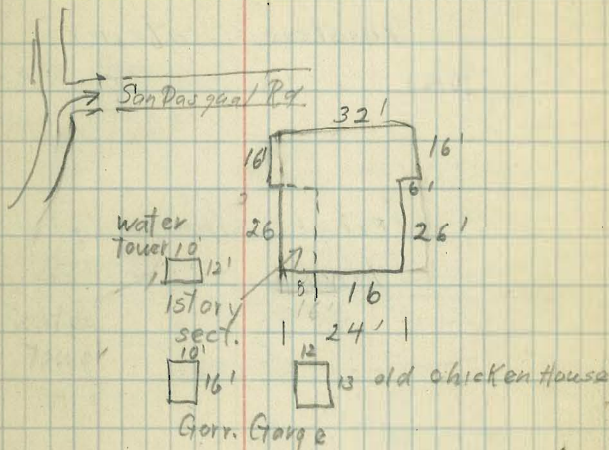 San Pasqual Rd.
32'
16'
16'
6'
26
26'
water
tower 10'
12'
1 story
sect.
8
16
24'
10'
16'
12
13
old chicken House
Gorr. Garge